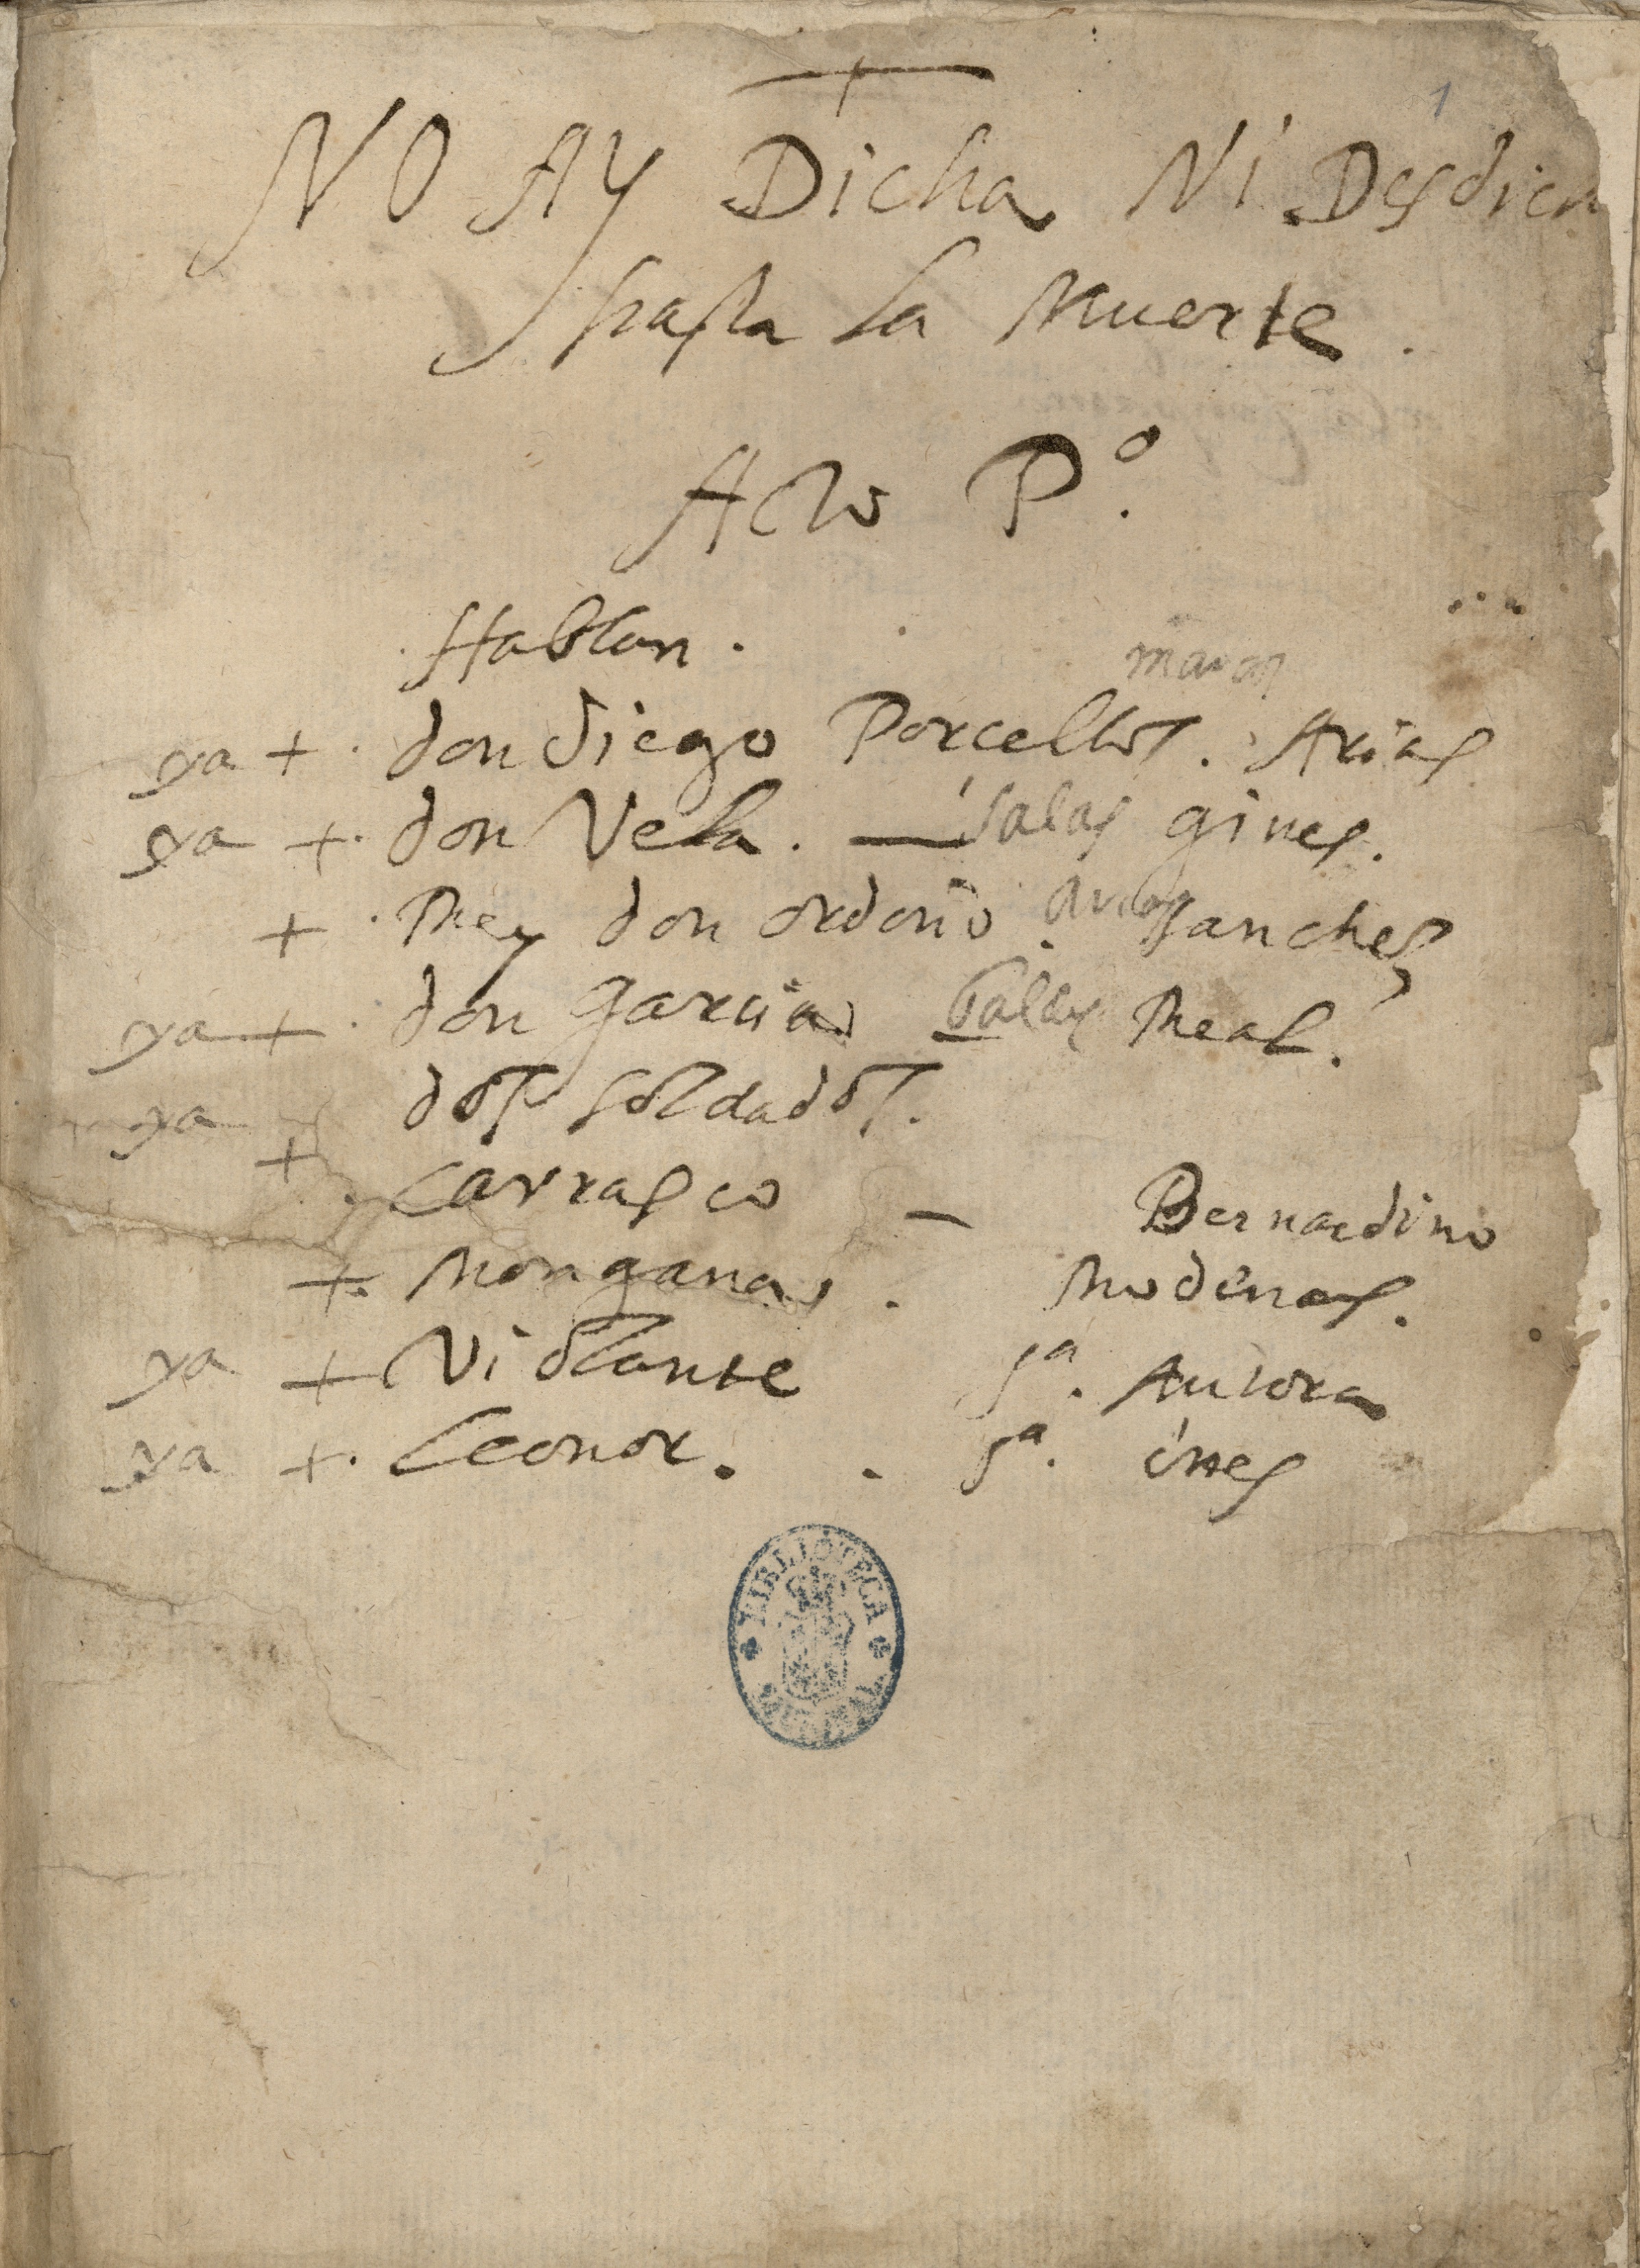 1
NO AY Dicha Ni Desdich
hasta la Muerte.
Acto P.º
Hablan.
ya + don diego Porcellos. Arias
ya + don Vela. — salas gines.
+ Rey don ordoño. sanchez
ya + don Garcia Real.
ya dos soldados.
+ Carrasco — Bernardino
+ Mongana. Modenas.
ya + Violante s.ª Autora
ya + Leonor. s.ª ines
BIBLIOTECA NACIONAL